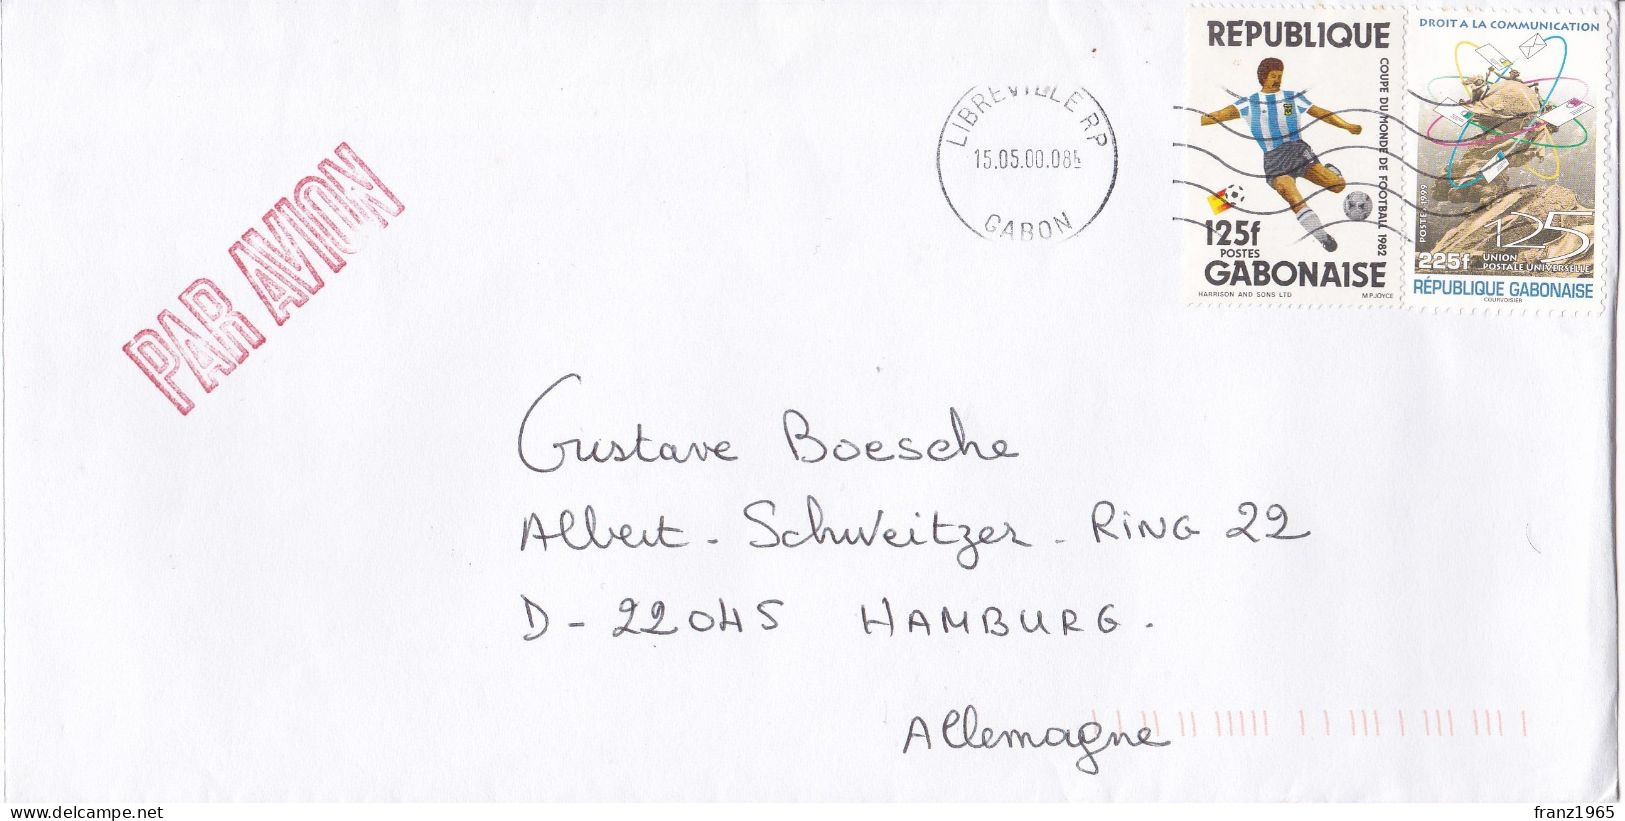 REPUBLIQUE
COUPE DU MONDE DE FOOTBALL 1982
125f
POSTES
GABONAISE
HARRISON AND SONS LTD M.P.JOYCE
DROIT A LA COMMUNICATION
POSTES 1999
125
225f
UNION
POSTALE UNIVERSELLE
RÉPUBLIQUE GABONAISE
COURVOISIER
LIBREVILLE R P
15.05.00.08
GABON
PAR AVION
Gustave Boesche
Albert - Schweitzer - RING 22
D - 22045 HAMBURG.
Allemagne
delcampe.net
franz1965